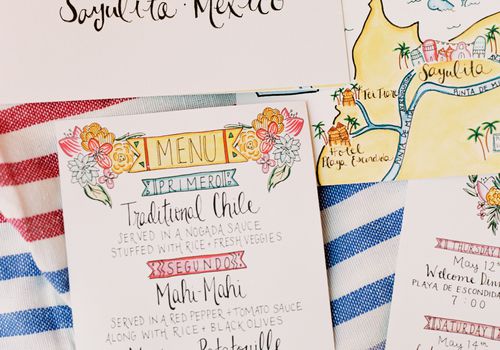 Sayulita · Mexico
MENU
PRIMERO
Traditional Chile
SERVED IN A NOGADA SAUCE
STUFFED WITH RICE + FRESH VEGGIES
SEGUNDO
Mahi-Mahi
SERVED IN A RED PEPPER + TOMATO SAUCE
ALONG WITH RICE + BLACK OLIVES
Ratatouille
Sayulita
PUNTA DE
Hotel
Playa Escondida
THURSDAY
MAY 12th
Welcome Dinn
PLAYA DE ESCONDIDA
7:00
SATURDAY
MAY 14th